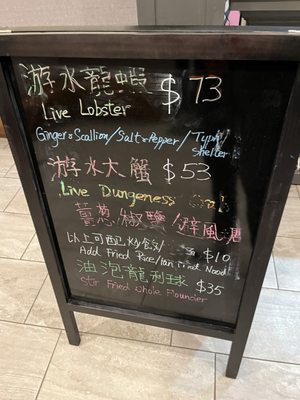 游水龍蝦 $73
Live Lobster
Ginger & Scallion / Salt & Pepper / Typh
Shelter
游水大蟹 $53
Live Dungeness
薑蔥/椒鹽/避風塘
以上可配炒
Add Fried Rice/Pan Fried Nood $10
油泡龍利球
Stir Fried Whole Flounder $35